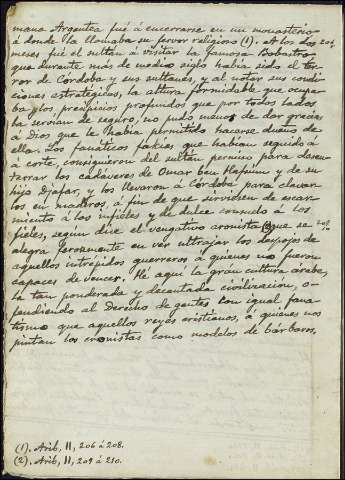 mana Argentea fué á encerrarse en un monasterio
á donde la llamaba su fervor religioso (1). A los dos
meses fué el sultán á visitar la famosa Bobastro,
que durante más de medio siglo había sido el te-
rror de Córdoba y sus sultanes, y al notar sus condi-
ciones estratégicas, la altura formidable que ocupa-
ba y los precipicios profundos que por todos lados
la servian de seguro, no pudo menos de dar gracias
á Dios que le había permitido hacerse dueño de
ella. Los fanáticos fakies que habían seguido á
la corte, consiguieron del sultán permiso para desen-
terrar los cadáveres de Omar ben Hafsun y de su
hijo Djafar, y los llevaron á Córdoba para clavar-
los en maderos, á fin de que sirviesen de escar-
miento á los infieles y de dulce consuelo á los
fieles, según dice el vengativo cronista que se
alegra ferozmente en ver ultrajar los despojos de
aquellos intrépidos guerreros á quienes no fueron
capaces de vencer. Hé aquí la gran cultura árabe,
la tan ponderada y decantada civilización, o-
fendiendo al Derecho de gentes con igual fana-
tismo que aquellos reyes cristianos, á quienes nos
pintan los cronistas como modelos de bárbaros.
(1). Arib, II, 206 á 208.
(2). Arib, II, 209 á 210.